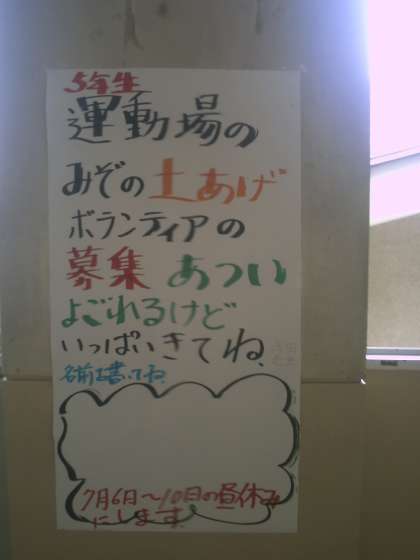 5年生
運動場の
みぞの土あげ
ボランティアの
募集 あつい
よごれるけど
いっぱいきてね、
名前を書いてね。
7月6日～10日の昼休み
にします。